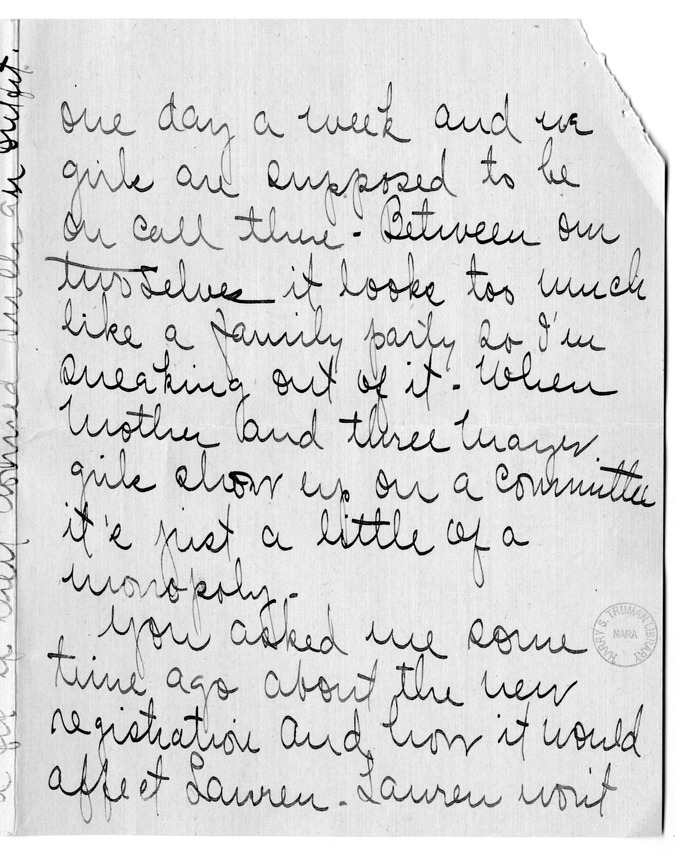 one day a week and we
girls are supposed to be
on call then - Between our
twoselves it looks too much
like a family party so I'm
sneaking out of it - When
Mother and three Mayer
girls show up on a committee
it's just a little of a
monopoly -
You asked me some
time ago about the new
registration and how it would
affect Lauren - Lauren won't
HARRY S. TRUMAN LIBRARY
NARA
an outfit.